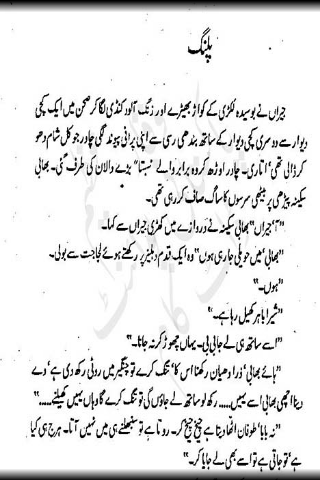 پلنگ
جیراں نے بوسیدہ لکڑی کے کواڑ بھیڑے اور زنگ آلود کنڈی لگا کر صحن میں ایک کچی
دیوار سے دوسری کچی دیوار کے ساتھ بندھی رسی سے اپنی پرانی پیوند لگی چادر جو کل شام دھو
کر ڈالی تھی' اتاری۔ چادر اوڑھ کر وہ برابر والے نسبتا" بڑے والان کی طرف گئی۔ بھابی
سکینہ پیڑھی پر بیٹھی سرسوں کا ساگ صاف کر رہی تھی۔
"آ جیراں" بھابی سکینہ نے دروازے میں کھڑی جیراں سے کہا۔
"بھابی' میں حویلی جا رہی ہوں" وہ ایک قدم دہلیز پر رکھتے ہوئے لجاجت سے بولی۔
"ہوں۔"
"شیرا باہر کھیل رہا ہے۔"
"اسے ساتھ ہی لے جا بی بی۔ یہاں چھوڑ کر نہ جانا۔"
"ہائے بھابی' ذرا دھیان رکھنا اس کا' تنگ کرے تو چنگیر میں روٹی رکھ دی ہے' دے
دینا اچھی بھابی اسے یہیں..... رکھ لو ساتھ لے جاؤں گی تو تنگ کرے گا وہاں یہیں کھیلنے....."
"نہ بابا' طوفان اٹھا دیتا ہے چیخ چیخ کر۔ روتا ہے تو سنبھلنے ہی میں نہیں آتا۔ ہرج ہی کیا
ہے' تو جاتی ہے تو اسے بھی لے جایا کر۔"